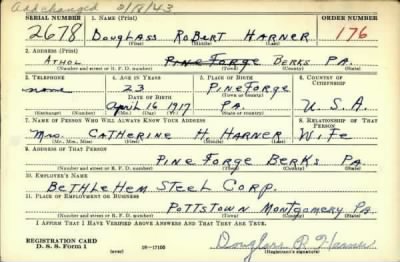 Add changed 2/8/43
SERIAL NUMBER 1. NAME (Print) ORDER NUMBER
2678 DOUGLASS ROBERT HARNER 176
(First) (Middle) (Last)
2. ADDRESS (Print)
ATHOL PINE FORGE BERKS PA.
(Number and street or R. F. D. number) (Town) (County) (State)
3. TELEPHONE 4. AGE IN YEARS 5. PLACE OF BIRTH 6. COUNTRY OF CITIZENSHIP
none 23 PINE FORGE
DATE OF BIRTH (Town or county)
April 16 1917 PA. U.S.A.
(Mo.) (Day) (Yr.) (State or country)
7. NAME OF PERSON WHO WILL ALWAYS KNOW YOUR ADDRESS 8. RELATIONSHIP OF THAT PERSON
Mrs. CATHERINE H. HARNER WIFE
(Mr., Mrs., Miss) (First) (Middle) (Last)
9. ADDRESS OF THAT PERSON
PINE FORGE BERKS PA
(Number and street or R. F. D. number) (Town) (County) (State)
10. EMPLOYER'S NAME
BETHLEHEM STEEL CORP.
11. PLACE OF EMPLOYMENT OR BUSINESS
POTTSTOWN MONTGOMERY PA.
(Number and street or R. F. D. number) (Town) (County) (State)
I AFFIRM THAT I HAVE VERIFIED ABOVE ANSWERS AND THAT THEY ARE TRUE.
REGISTRATION CARD
D. S. S. Form 1 (over) 16—17105 Douglass R Harner
(Registrant's signature)